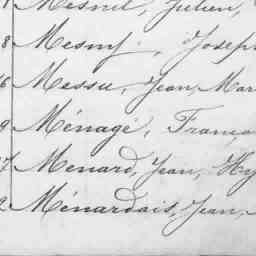 Mesnil, Julien,
8 Mesny, Joseph
6 Messu, Jean, Mar
9 Ménagé, Franço
7 Menard, Jean, Hy
2 Ménardais, Jean,